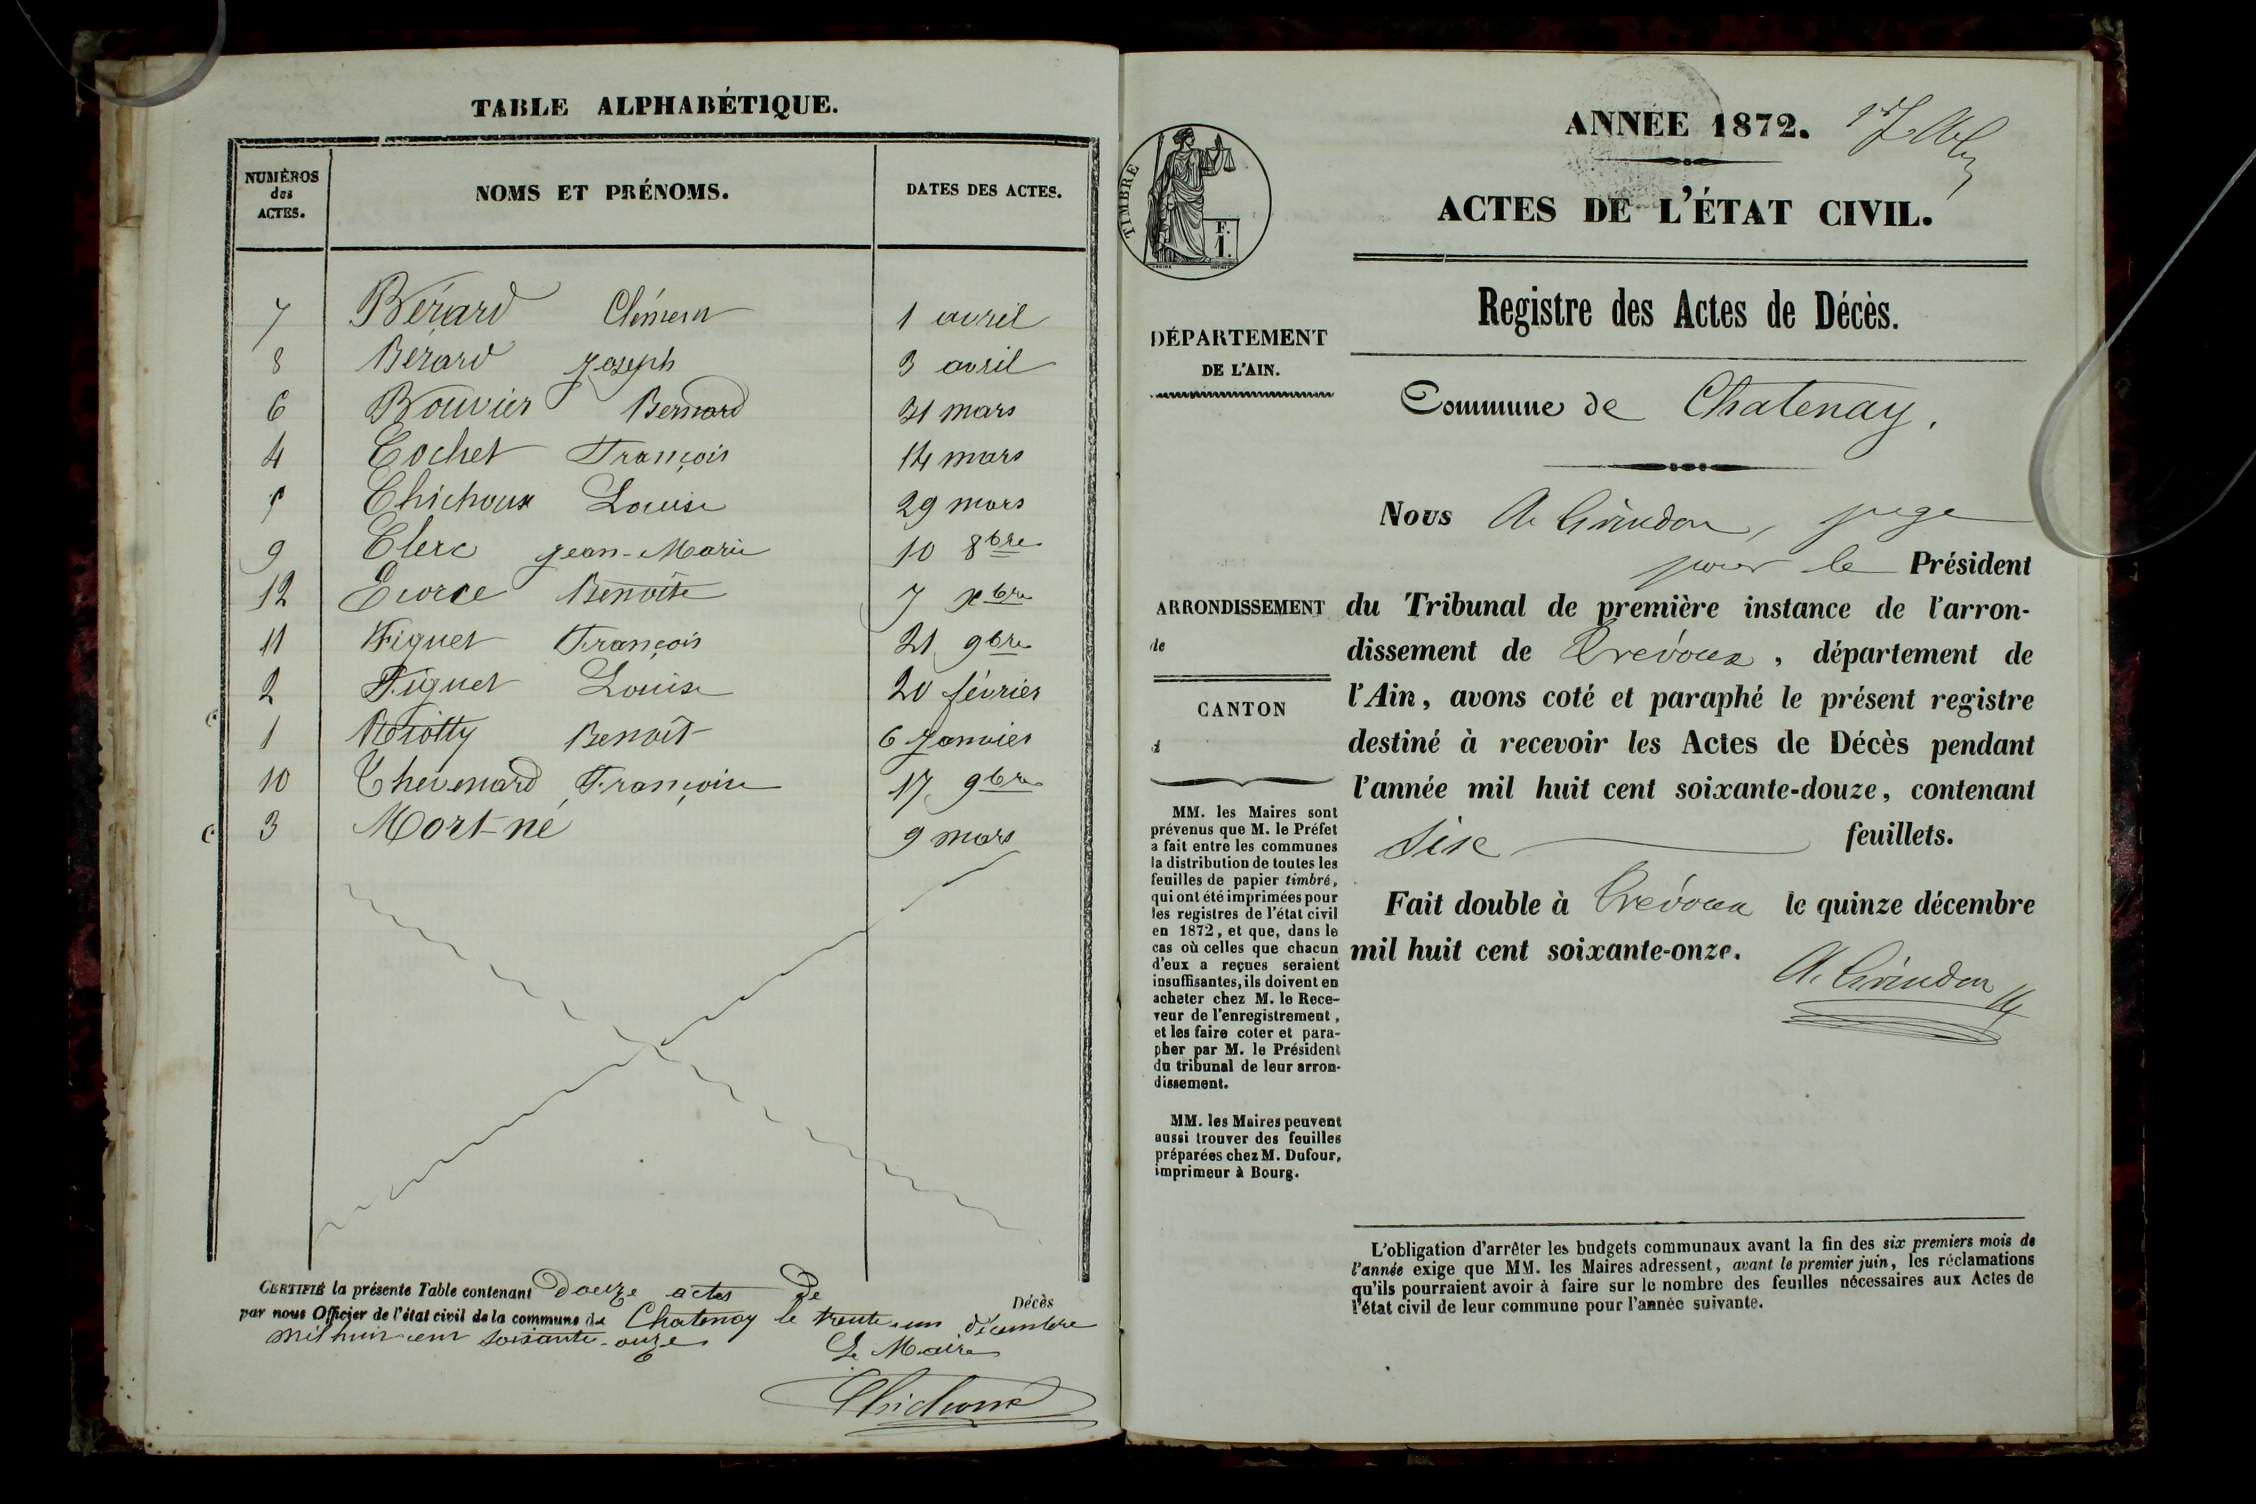 TABLE ALPHABÉTIQUE.
NUMÉROS des ACTES. NOMS ET PRÉNOMS. DATES DES ACTES.
7 Bérard Clément 1 avril
8 Bérard Joseph 3 avril
6 Bouvier Bernard 31 mars
4 Cochet François 14 mars
5 Chichoux Louise 29 mars
9 Clerc Jean-Marie 10 8bre
12 Ecorce Benoîte 7 xbre
11 Figuet François 21 9bre
2 Figuet Louise 20 février
1 Benoit 6 Janvier
10 Thevenard Françoise 17 9bre
3 Mort-né 9 mars
CERTIFIÉ la présente Table contenant Douze actes de Décès
par nous Officier de l'état civil de la commune de Chatenay le trente-un décembre
mil huit cent soixante-onze
Le Maire
Chichoux
ANNÉE 1872.
ACTES DE L'ÉTAT CIVIL.
TIMBRE
F. 1.
Registre des Actes de Décès.
DÉPARTEMENT
DE L'AIN.
Commune de Chatenay.
ARRONDISSEMENT
de
CANTON
d
MM. les Maires sont
prévenus que M. le Préfet
a fait entre les communes
la distribution de toutes les
feuilles de papier timbré,
qui ont été imprimées pour
les registres de l'état civil
en 1872, et que, dans le
cas où celles que chacun
d'eux a reçues seraient
insuffisantes, ils doivent en
acheter chez M. le Rece-
veur de l'enregistrement,
et les faire coter et para-
pher par M. le Président
du tribunal de leur arron-
dissement.
MM. les Maires peuvent
aussi trouver des feuilles
préparées chez M. Dufour,
imprimeur à Bourg.
Nous A. Grindon, juge
pour le Président
du Tribunal de première instance de l'arron-
dissement de Trévoux, département de
l'Ain, avons coté et paraphé le présent registre
destiné à recevoir les Actes de Décès pendant
l'année mil huit cent soixante-douze, contenant
Six feuillets.
Fait double à Trévoux le quinze décembre
mil huit cent soixante-onze.
A. Grindon
L'obligation d'arrêter les budgets communaux avant la fin des six premiers mois de
l'année exige que MM. les Maires adressent, avant le premier juin, les réclamations
qu'ils pourraient avoir à faire sur le nombre des feuilles nécessaires aux Actes de
l'état civil de leur commune pour l'année suivante.